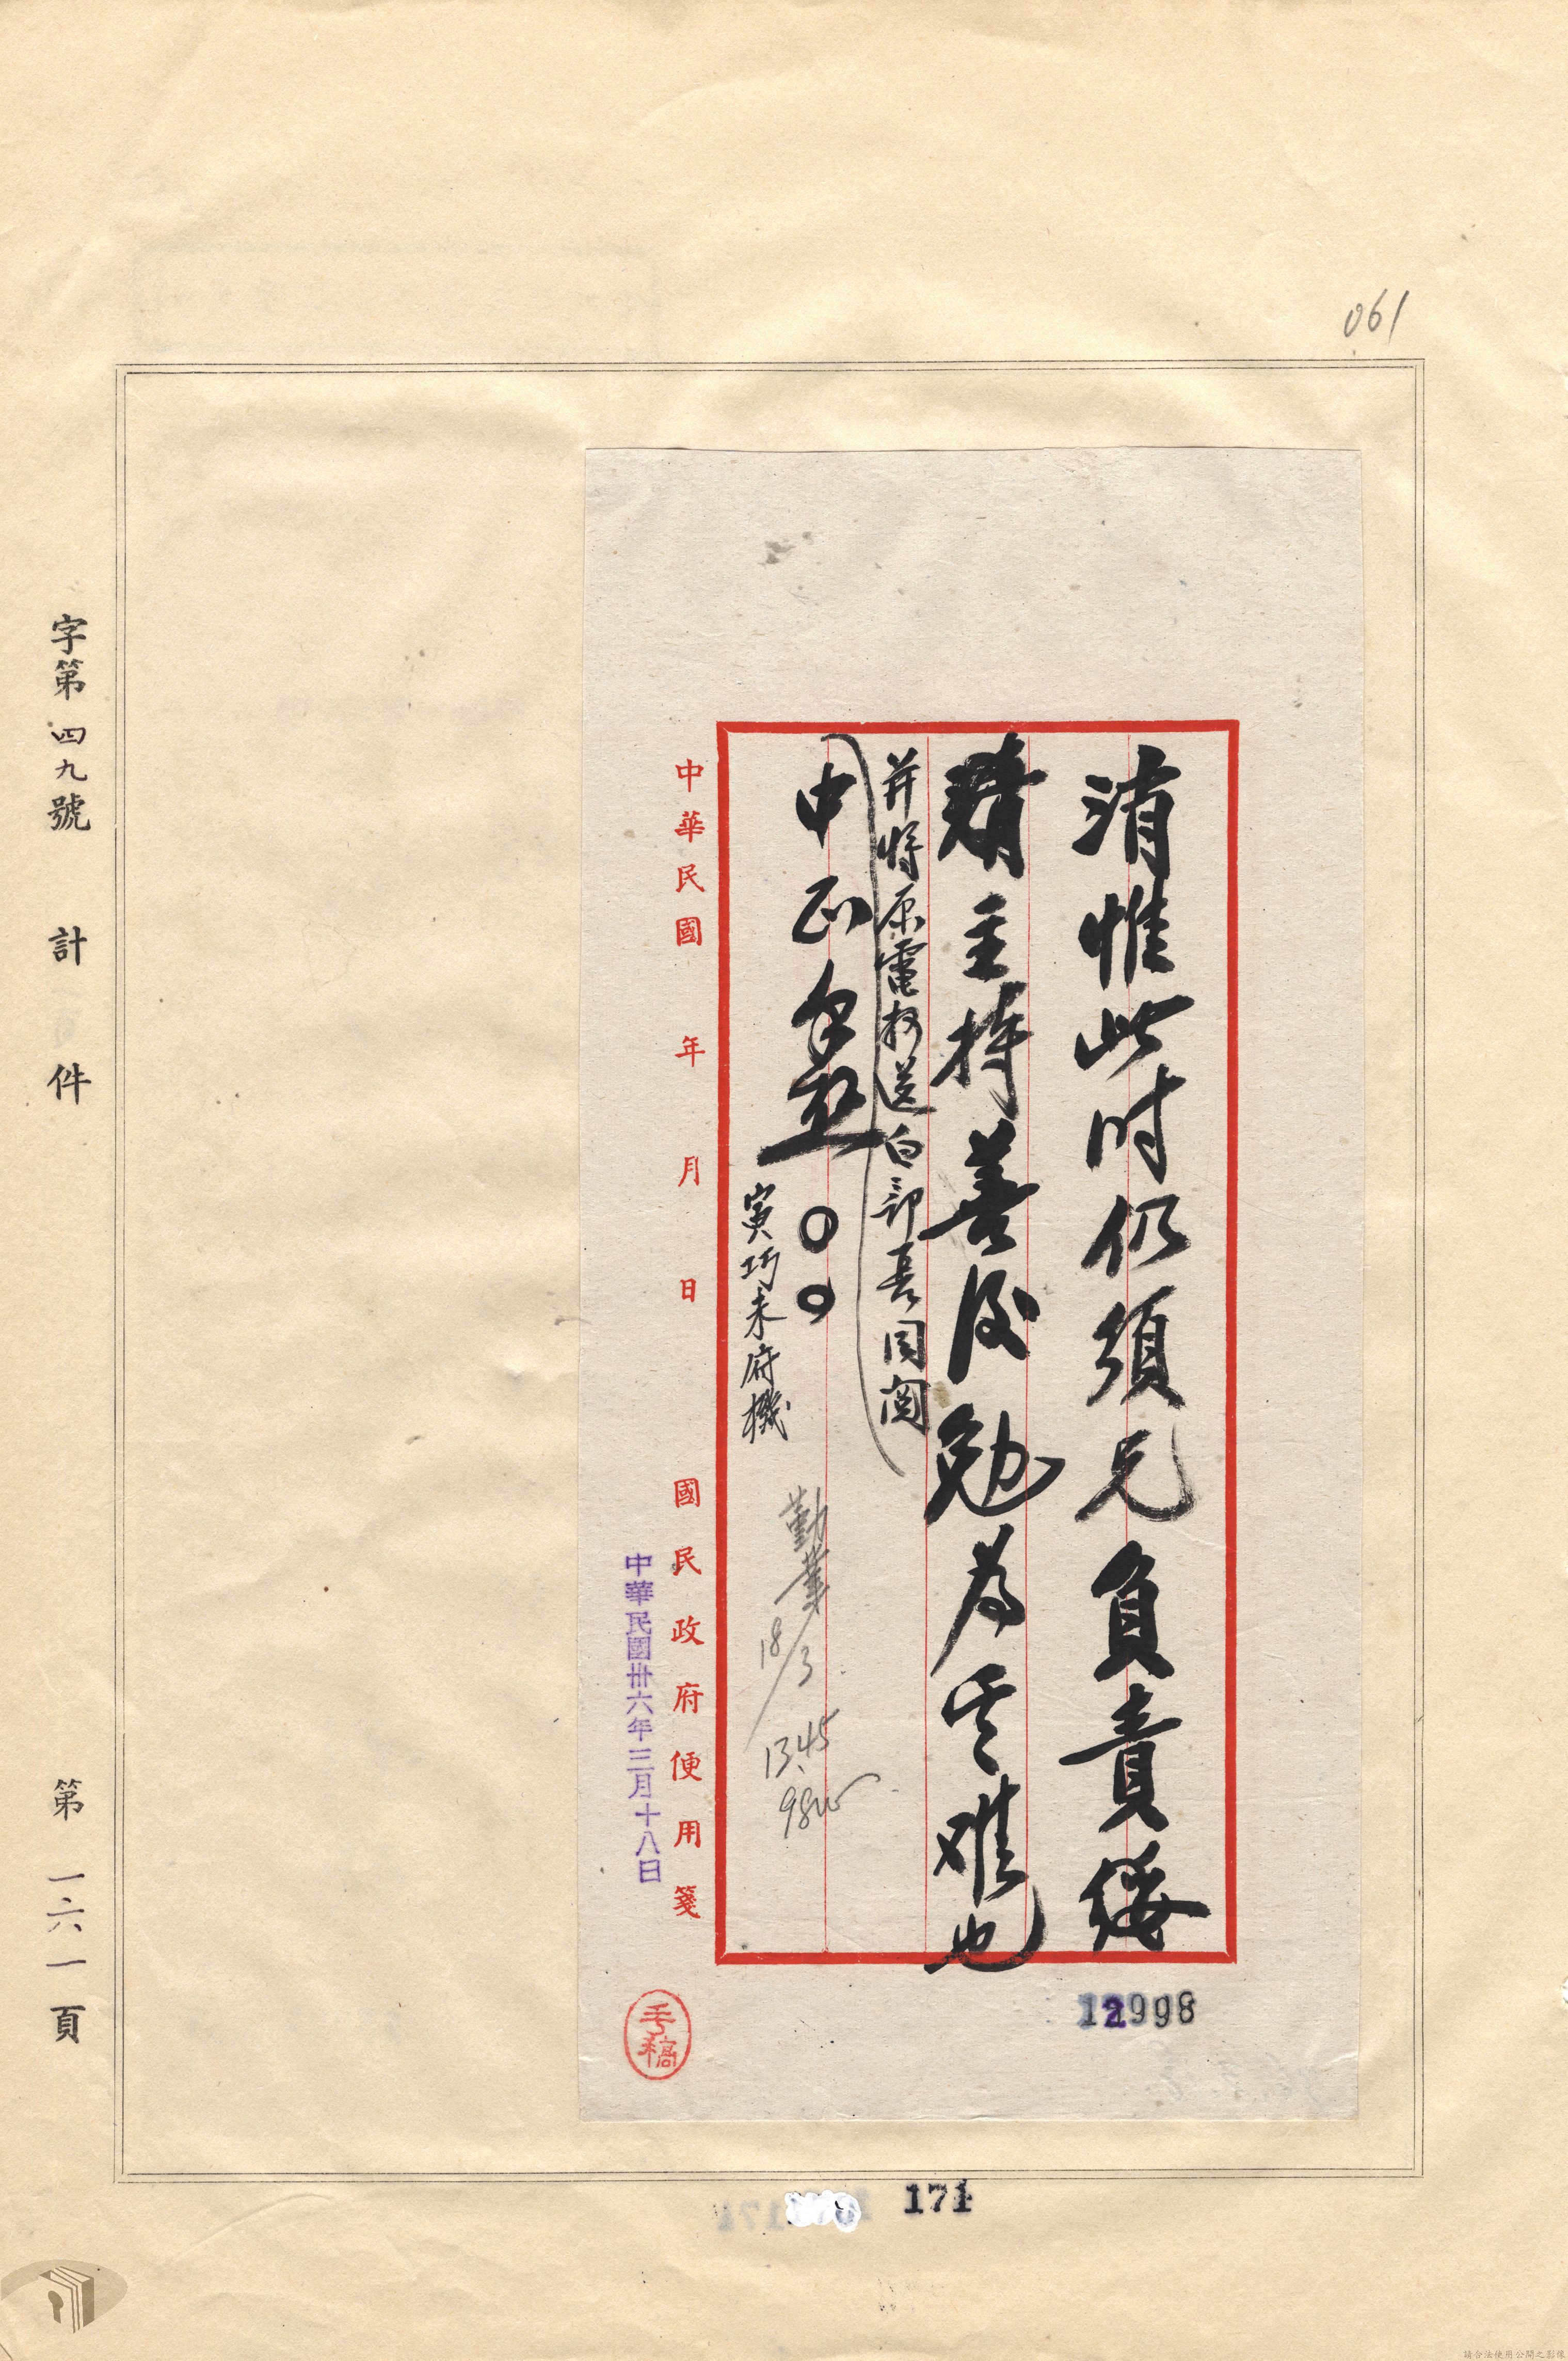 061
消惟此時仍須兄負責綏
靖主持善後勉為其难也
并將原電抄送白部長同閱
中正手啟〇〇
寅巧未府機
勤業
18/3
13.45
中華民國 年 月 日 國民政府便用箋
中華民國卅六年三月十八日
手稿
12998
字第四九號 計 件 第一六一頁
171
請合法使用公開之影像